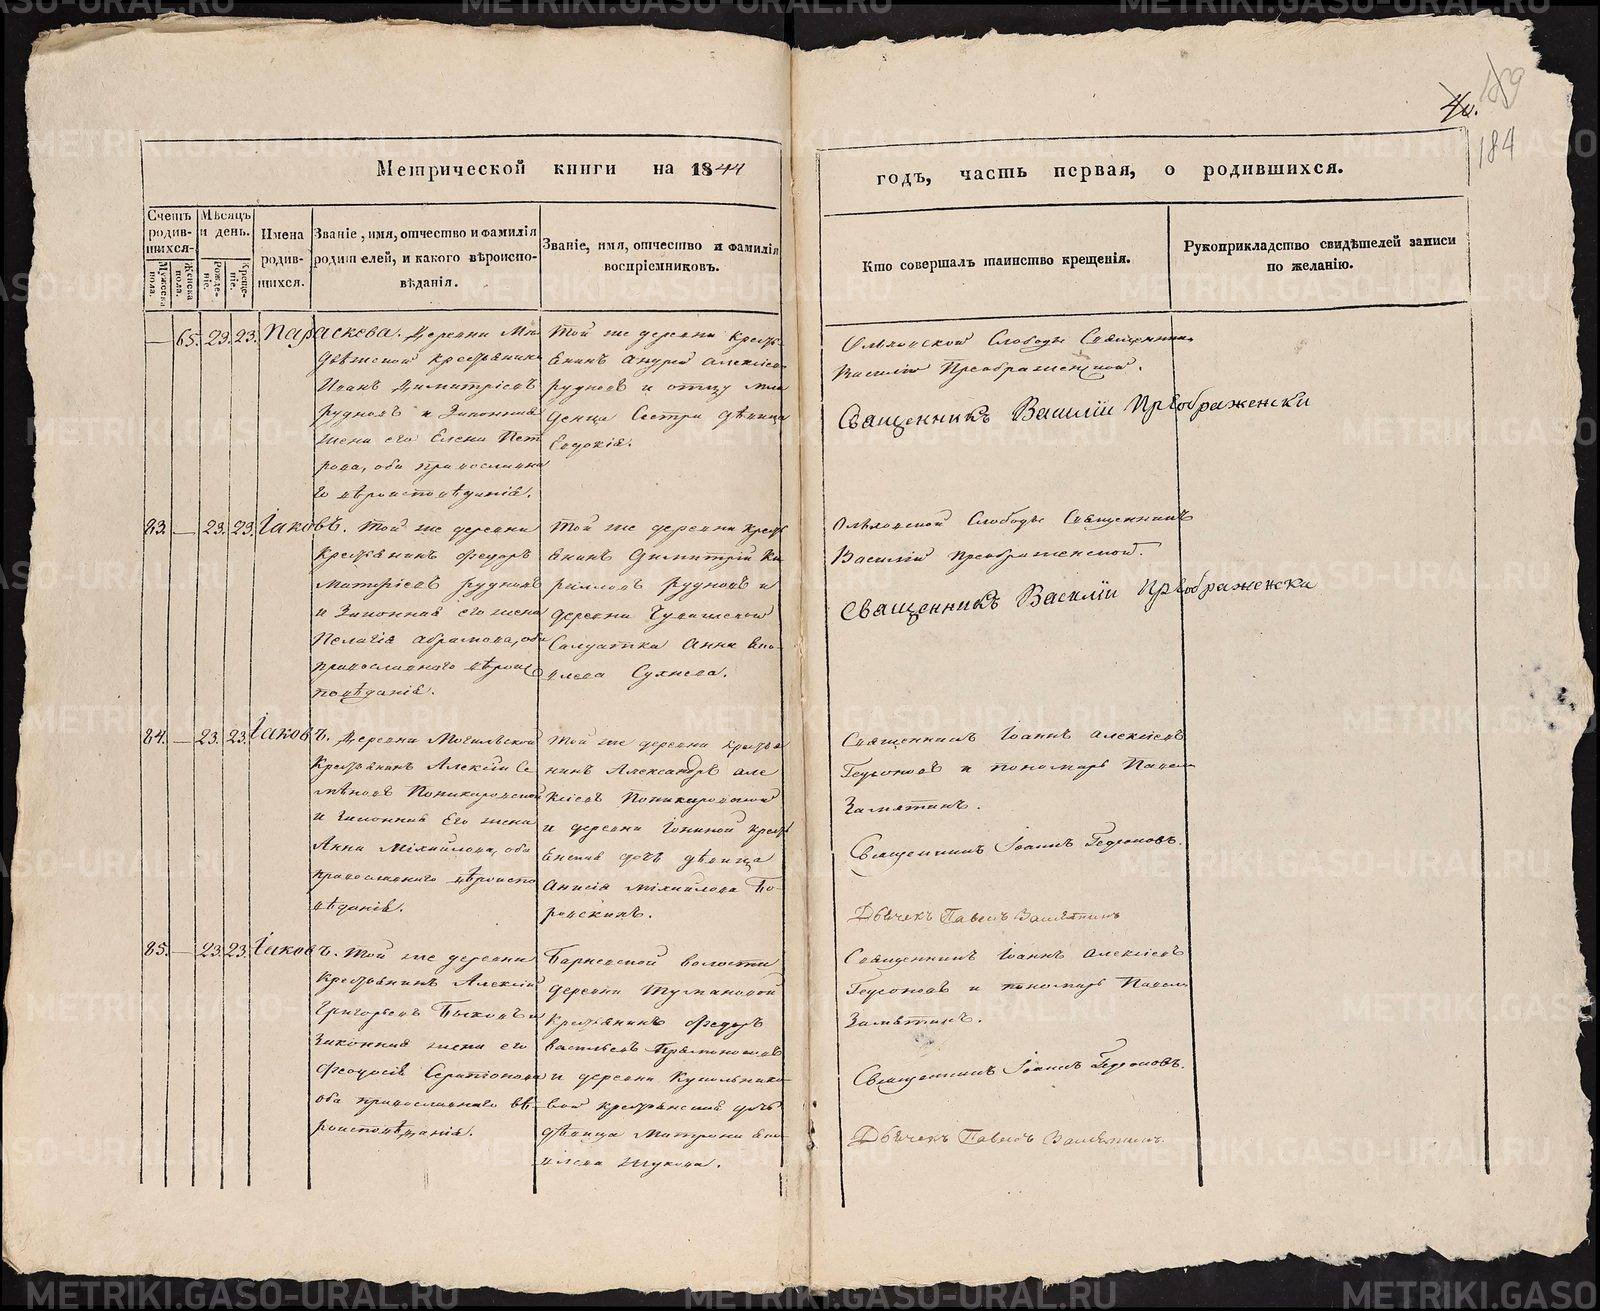 189
40.
184
Метрической книги на 1844
годъ, часть первая, о родившихся.
Счетъ родив-шихся.
Мѣсяцъ и день.
Имена родив-шихся.
Званіе, имя, отчество и фамилія родителей, и какого вѣроиспо-вѣданія.
Званіе, имя, отчество и фамилія воспріемниковъ.
Кто совершалъ таинство крещенія.
Рукоприкладство свидѣтелей записи по желанію.
Мужеска пола.
Женска пола.
Рожде-ніе.
Креще-ніе.
— 65. 23. 23. Параскева.
Деревни
крестьянинъ
Иванъ Димитріевъ
Рудновъ и Законная
жена его Елена Пет
рова, оба православна
го вѣроисповѣданія.
Той же деревни кресть
янинъ Андрей Алексѣевъ
Рудновъ и отцу мла
денца Сестра дѣвица
Евдокія.
Слободы Священникъ
Василій Преображенской.
Священникъ Василій Преображенски
83. — 23. 23. Іаковъ.
Той же деревни
Крестьянинъ Федоръ
Рудновъ
и Законная его жена
Пелагія Абрамова, оба
православнаго вѣроис
повѣданія.
Той же деревни кресть
янинъ Димитрій Ки
рилловъ Рудновъ и
деревни
Салдатка Анна
Слободы Священникъ
Василій Преображенской.
Священникъ Василій Преображенски
84. — 23. 23. Іаковъ.
Деревни Могильской
Крестьянинъ Алексѣй Се
мѣновъ
и Законная Его жена
Анна Міхайлова, оба
православнаго вѣроиспо
вѣданія.
Той же деревни кресть
нинъ Александръ Але
ксіевъ
и деревни кресть
янская дочь дѣвица
Анисія Міхайлова Бо-
ровскихъ.
Священникъ Іоаннъ Алексіевъ
Гедеоновъ и пономарь Павелъ
Замятинъ.
Священникъ Іоаннъ Гедеоновъ.
Дьячекъ Павелъ Замятинъ
85. — 23. 23. Іаковъ.
Той же деревни
Крестьянинъ Алексѣй
Григорьевъ Быковъ и
Законная жена его
Феодосія Серапіонова
оба православнаго вѣ-
роисповѣданія.
Барневской волости
деревни Тумановой
Крестьянинъ Федоръ
Васильевъ
и деревни
вой крестьянская дочь
дѣвица Матрона
Жукова.
Священникъ Іоаннъ Алексіевъ
Гедеоновъ и пономарь Павелъ
Замятинъ.
Священникъ Іоаннъ Гедеоновъ.
Дьячекъ Павелъ Замятинъ.
METRIKI.GASO-URAL.RU